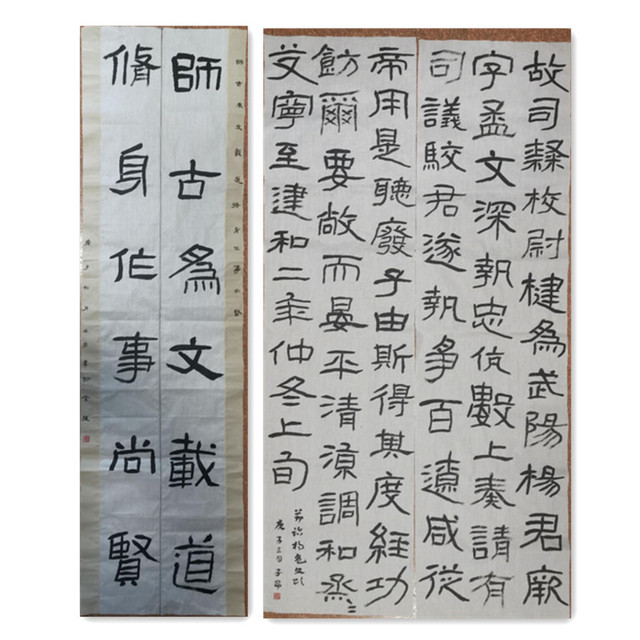 師古為文載道
脩身作事尚賢
故司隸校尉楗為武陽楊君厥
字孟文深執忠伉數上奏請有
司議駮君遂執爭百遼咸從
帝用是聽廢子由斯得其度經功
飭爾要敞而晏平清涼調和烝〻
艾寧至建和二年仲冬上旬
庚子